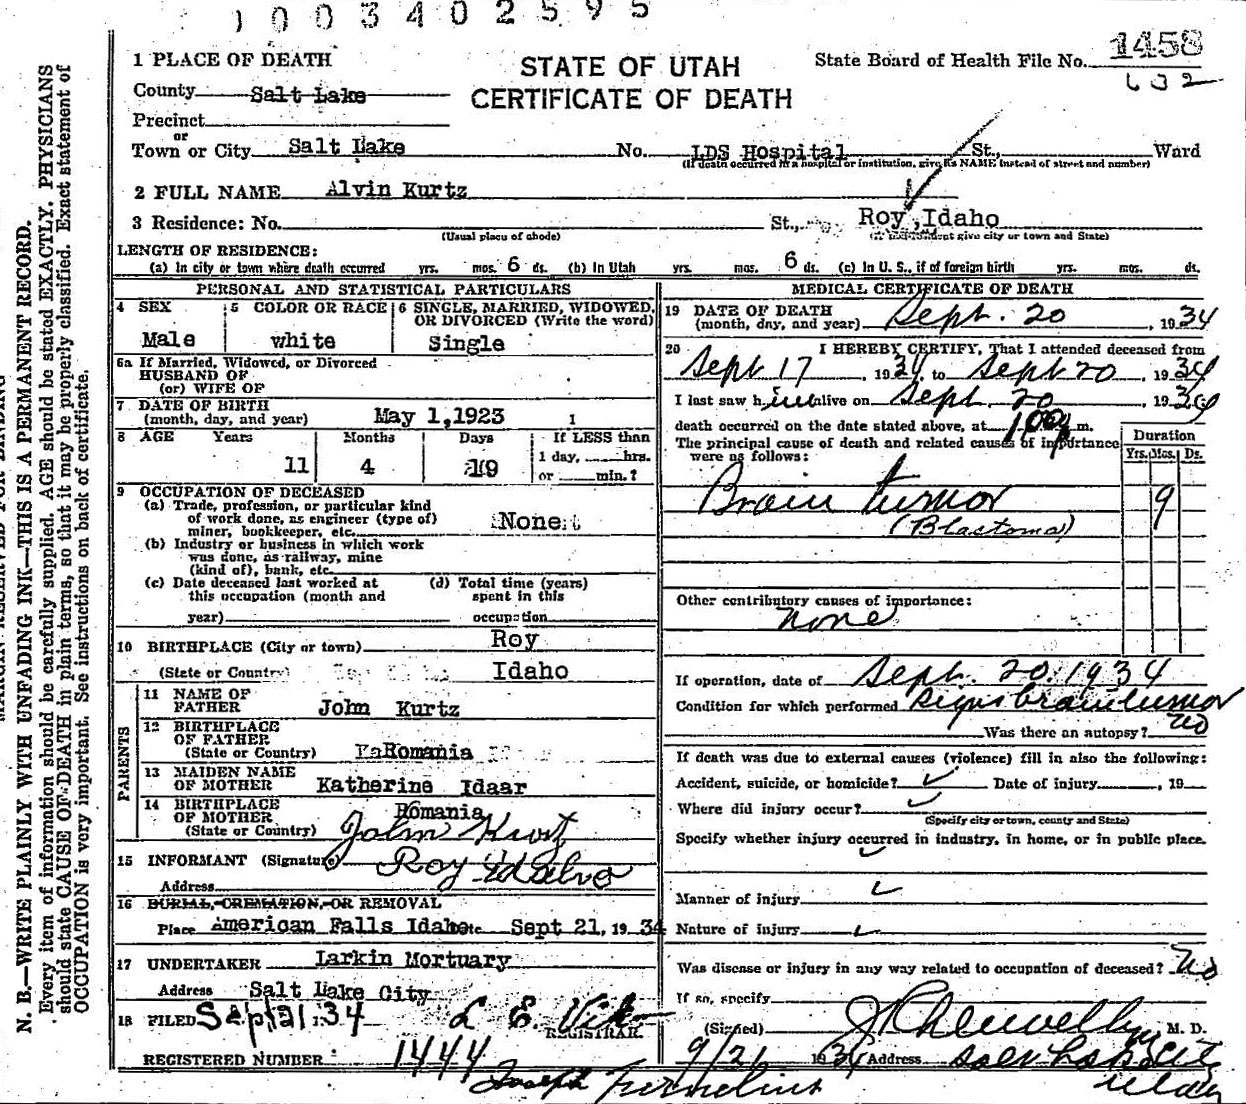 1003402595
STATE OF UTAH
CERTIFICATE OF DEATH
State Board of Health File No. 1458
632
1 PLACE OF DEATH
County Salt Lake
Precinct
or
Town or City Salt Lake No. LDS Hospital St., Ward
(If death occurred in a hospital or institution, give its NAME instead of street and number)
2 FULL NAME Alvin Kurtz
3 Residence: No. St., Roy, Idaho
(Usual place of abode) (If nonresident give city or town and State)
LENGTH OF RESIDENCE:
(a) In city or town where death occurred yrs. mos. 6 ds. (b) In Utah yrs. mos. 6 ds. (c) In U. S., if of foreign birth yrs. mos. ds.
PERSONAL AND STATISTICAL PARTICULARS
4 SEX 5 COLOR OR RACE 6 SINGLE, MARRIED, WIDOWED, OR DIVORCED (Write the word)
Male white Single
6a If Married, Widowed, or Divorced
HUSBAND OF
(or) WIFE OF
7 DATE OF BIRTH
(month, day, and year) May 1,1923 1
8 AGE Years Months Days If LESS than
1 day, hrs.
11 4 19 or min.?
9 OCCUPATION OF DECEASED
(a) Trade, profession, or particular kind
of work done, as engineer (type of)
miner, bookkeeper, etc. None
(b) Industry or business in which work
was done, as railway, mine
(kind of), bank, etc.
(c) Date deceased last worked at (d) Total time (years)
this occupation (month and spent in this
year) occupation
10 BIRTHPLACE (City or town) Roy
(State or Country) Idaho
PARENTS
11 NAME OF
FATHER John Kurtz
12 BIRTHPLACE
OF FATHER
(State or Country) Romania
13 MAIDEN NAME
OF MOTHER Katherine Idaar
14 BIRTHPLACE
OF MOTHER Romania
(State or Country)
John Kurtz
15 INFORMANT (Signature)
Roy Idaho
Address
16 BURIAL, CREMATION, OR REMOVAL
Place American Falls Idaho Date Sept 21, 1934
17 UNDERTAKER Larkin Mortuary
Address Salt Lake City
18 FILED Sept 21 1934
REGISTRAR.
REGISTERED NUMBER 1444
Joseph
MEDICAL CERTIFICATE OF DEATH
19 DATE OF DEATH
(month, day, and year) Sept. 20, 1934
20 I HEREBY CERTIFY, That I attended deceased from
Sept 17, 1934 to Sept 20, 1934
I last saw him alive on Sept. 20, 1934
death occurred on the date stated above, at 1:00 p m.
The principal cause of death and related causes of importance
were as follows:
Duration
Yrs. Mos. Ds.
Brain tumor 9
(Blastoma)
Other contributory causes of importance:
none
If operation, date of Sept. 20, 1934
Condition for which performed signs brain tumor
Was there an autopsy? no
If death was due to external causes (violence) fill in also the following:
Accident, suicide, or homicide? Date of injury, 19
Where did injury occur?
(Specify city or town, county and State)
Specify whether injury occurred in industry, in home, or in public place.
Manner of injury
Nature of injury
Was disease or injury in any way related to occupation of deceased? No
If so, specify
(Signed) M. D.
9/21 1934 Address Salt Lake City
Utah
N. B.—WRITE PLAINLY WITH UNFADING INK—THIS IS A PERMANENT RECORD.
Every item of information should be carefully supplied. AGE should be stated EXACTLY. PHYSICIANS
should state CAUSE OF DEATH in plain terms, so that it may be properly classified. Exact statement of
OCCUPATION is very important. See instructions on back of certificate.